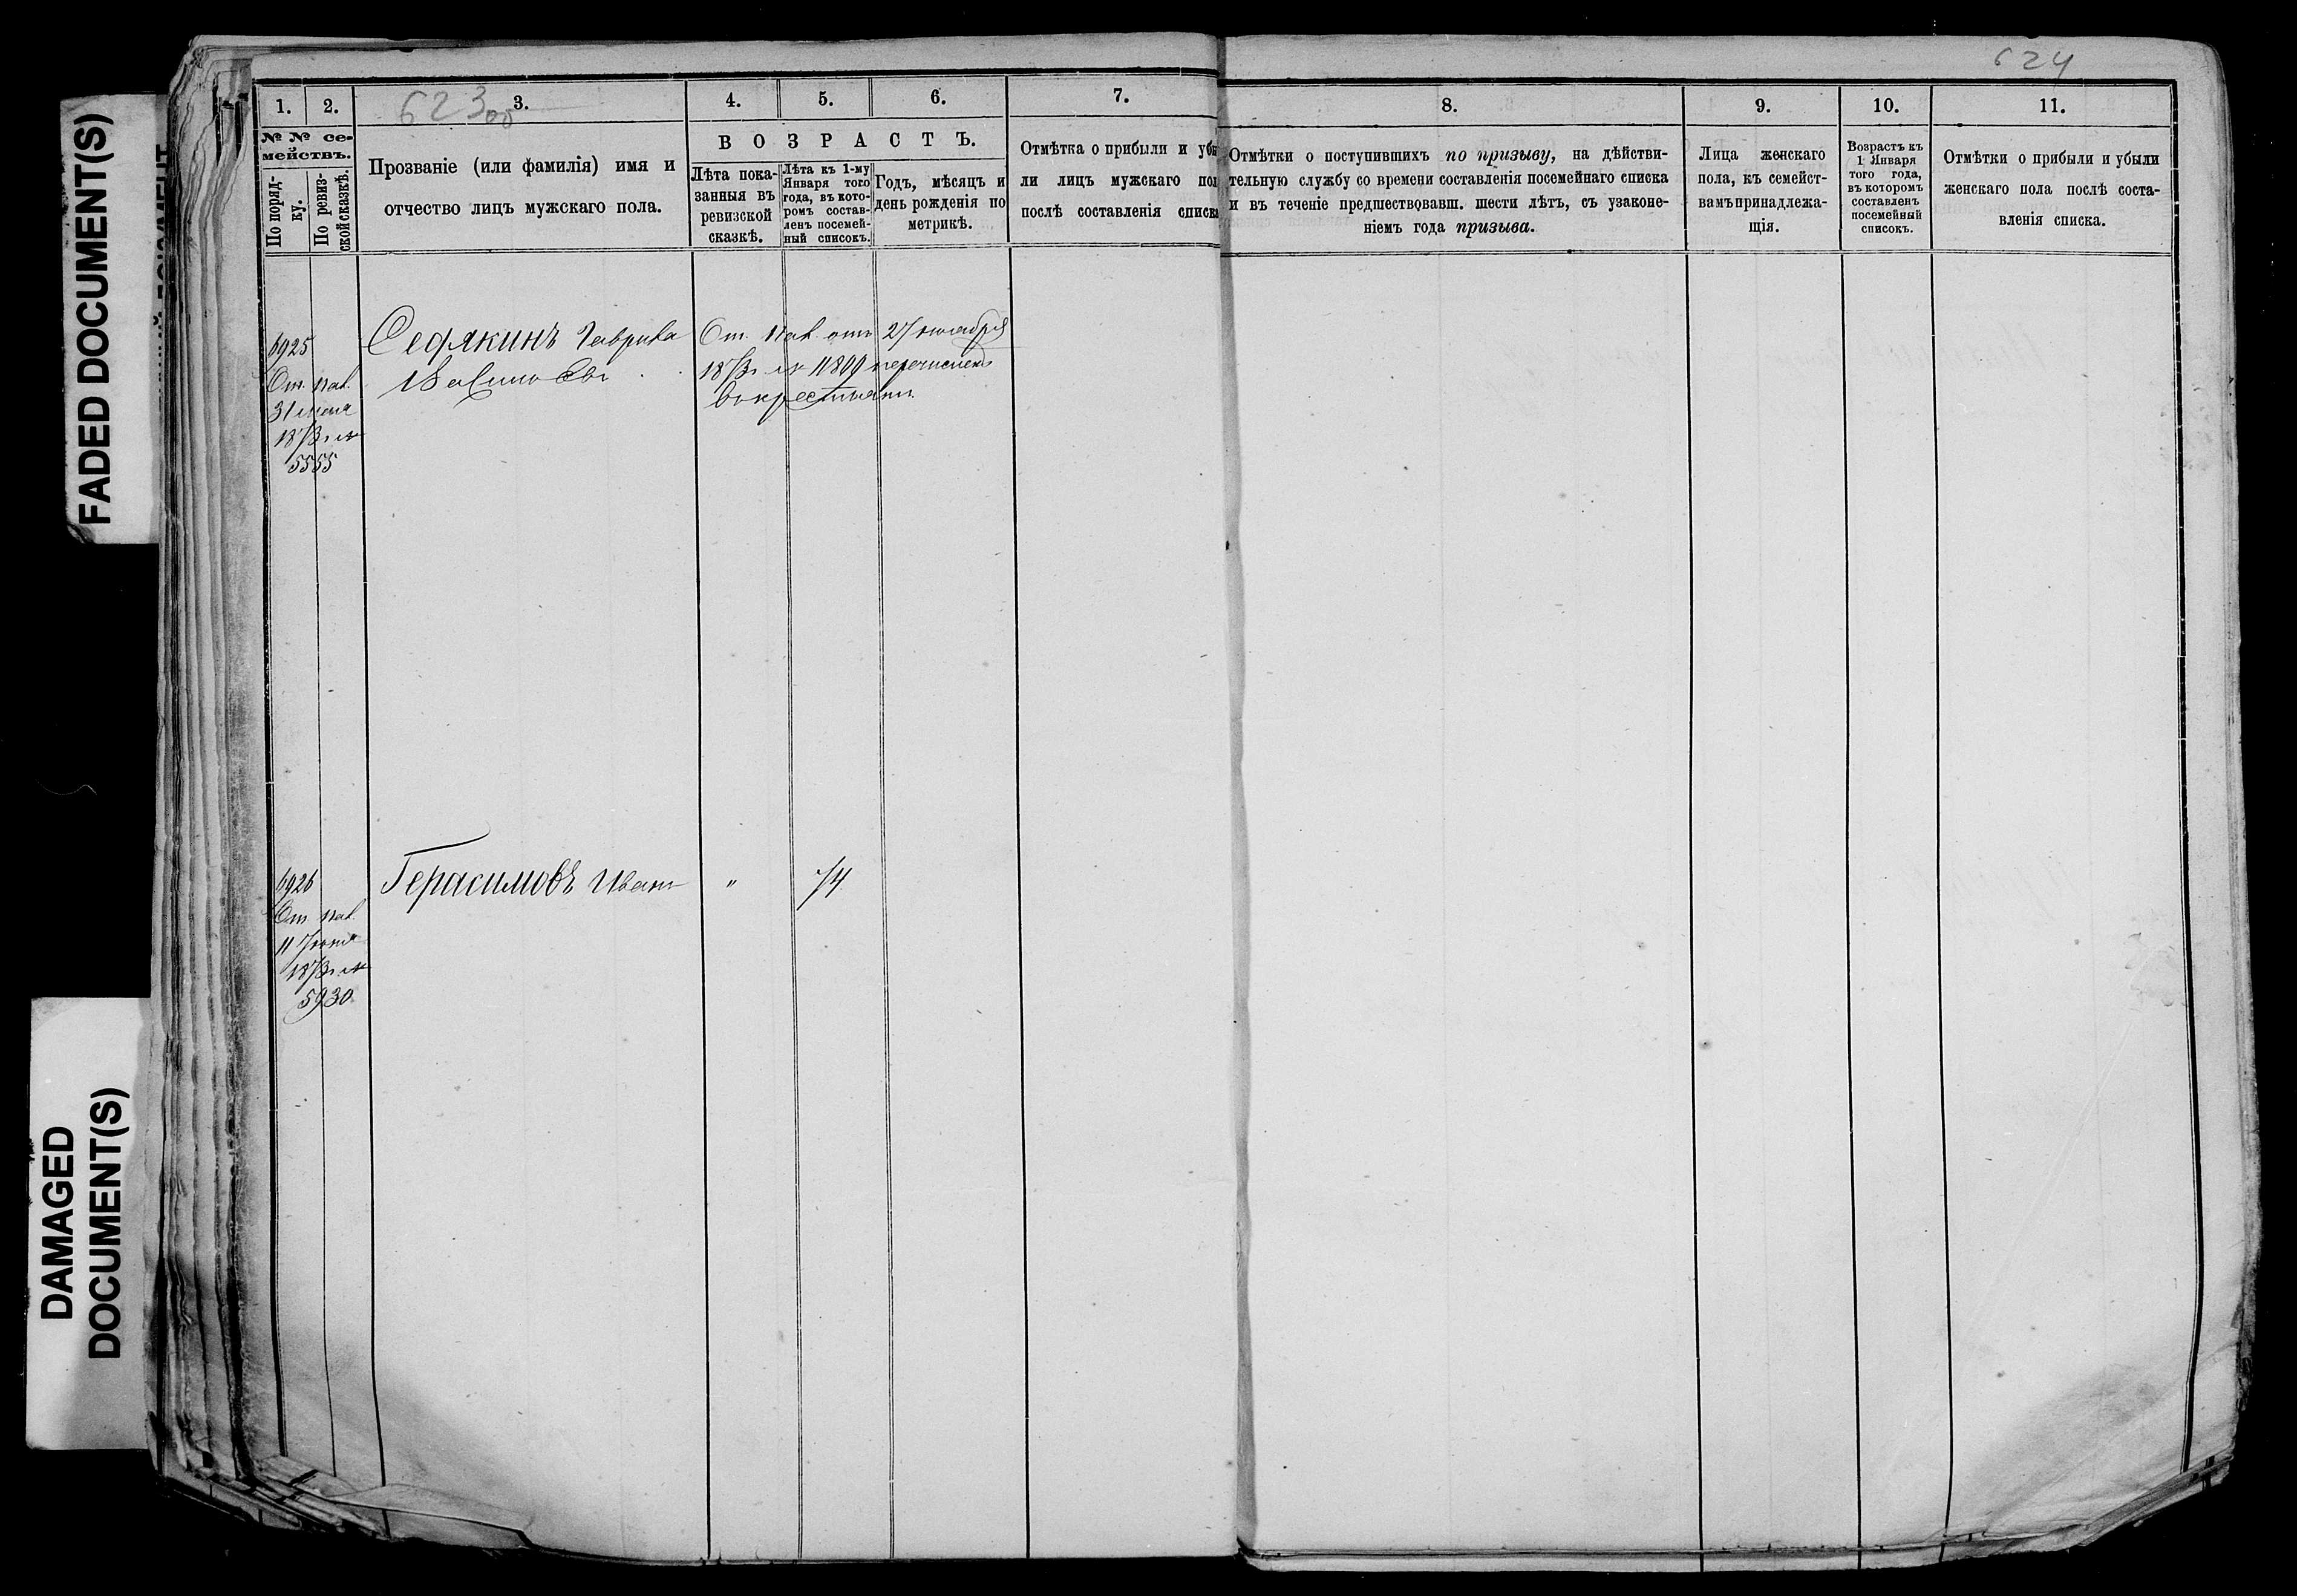 FADED DOCUMENT(S)
DAMAGED
DOCUMENT(S)
623
624
1.
2.
3.
4.
5.
6.
7.
8.
9.
10.
11.
№ № се-
мействъ.
По поряд-
ку.
По ревиз-
ской сказкѣ.
Прозваніе (или фамилія) имя и
отчество лицъ мужскаго пола.
ВОЗРАСТЪ.
Лѣта пока-
занныя въ
ревизской
сказкѣ.
Лѣта къ 1-му
Января того
года, въ кото-
ромъ состав-
ленъ посемей-
ный списокъ.
Годъ, мѣсяцъ и
день рожденія по
метрикѣ.
Отмѣтка о прибыли и убы
ли лицъ мужскаго пол
послѣ составленія списк
Отмѣтки о поступившихъ по призыву, на дѣйстви-
тельную службу со времени составленія посемейнаго списка
и въ теченіе предшествовавш. шести лѣтъ, съ узаконе-
ніемъ года призыва.
Лица женскаго
пола, къ семейст-
вамъ принадлежа-
щія.
Возрастъ къ
1 Января
того года,
въ которомъ
составленъ
посемейный
списокъ.
Отмѣтки о прибыли и убыли
женскаго пола послѣ соста-
вленія списка.
6925
От. пал.
31 мая
1873 г. №
5555
Сефякинъ Гаврила
От. пал. отъ 27 ноября
1873 г. № 11899 перечисленъ
въ крестьяни.
6926
От. пал.
11 Іюня
1873 г. №
5930
Герасимовъ Иванъ
"
74